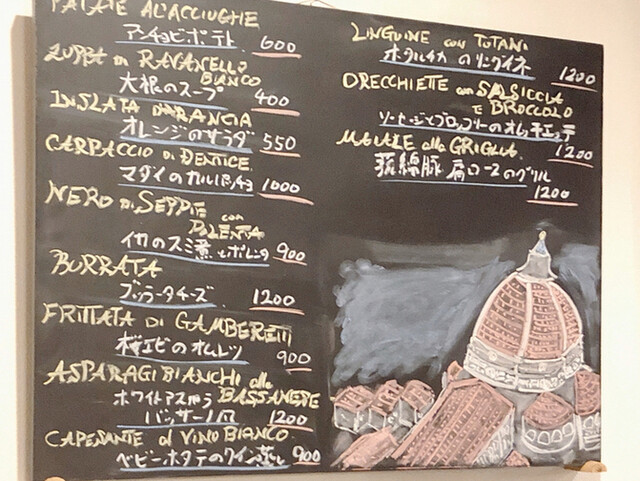 PATATE AL'ACCIUGHE
アンチョビポテト 600
ZUPPA DI RAVANELLO
BIANCO
大根のスープ 400
INSLATA D'ARANCIA
オレンジのサラダ 550
CARPACCIO DI DENTICE
マダイのカルパッチョ 1000
NERO DI SEPPIE
con
POLENTA
イカのスミ煮とポレンタ 900
BURRATA
ブッラータチーズ 1200
FRITTATA DI GAMBERETTI
桜エビのオムレツ 900
ASPARAGI BIANCHI alla
BASSANESE
ホワイトアスパラ
バッサーノ風 1200
CAPESANTE al VINO BIANCO
ベビーホタテのワイン蒸し 900
LINGUINE con TOTANI
ホタルイカのリングイネ
1200
ORECCHIETTE con SALSICCIA
E BROCCOLO
ソーセージとブロッコリーのオレキエッテ
1200
MAIALE alla GRIGLIA
肩ロースのグリル
1200